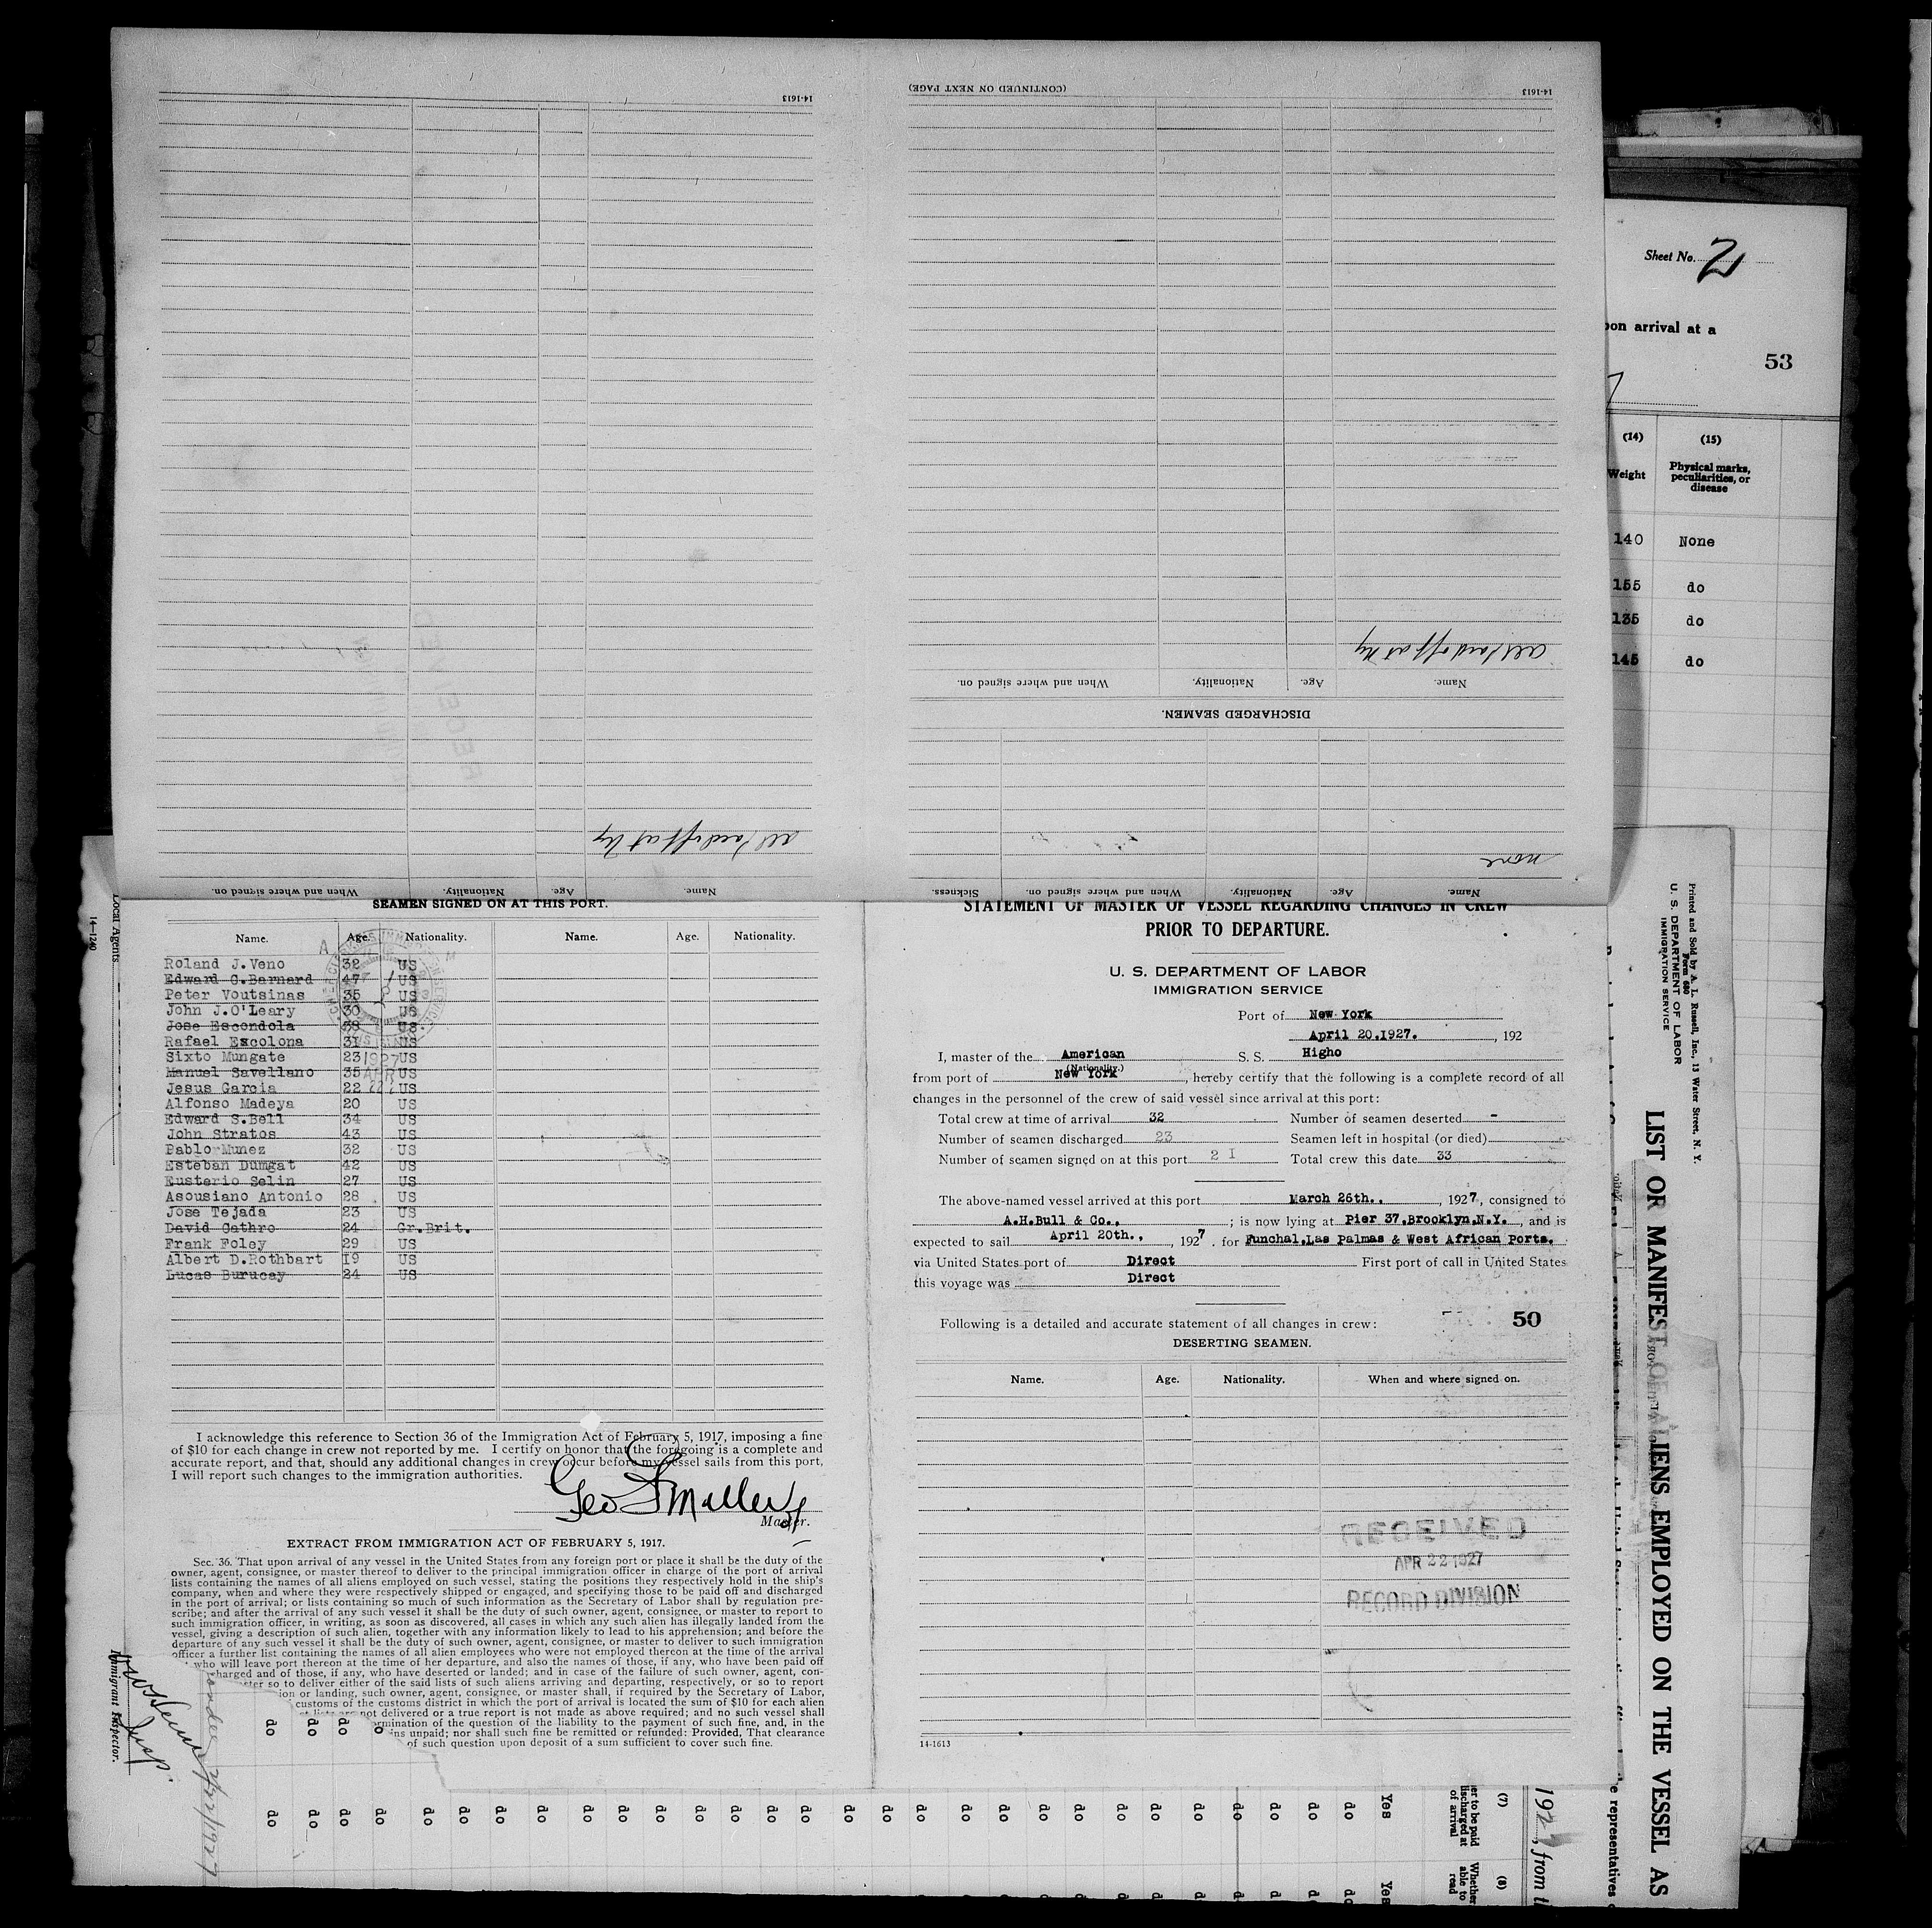 14-1613
(CONTINUED ON NEXT PAGE)
14-1613
all paid off at Ny
Name. Age. Nationality. When and where signed on.
DISCHARGED SEAMEN.
all paid off at Ny
none
Name. Age. Nationality. When and where signed on.
Name. Age. Nationality. When and where signed on. Sickness.
Sheet No. 2
pon arrival at a
53
(14) (15)
Weight Physical marks, peculiarities, or disease
140 None
155 do
135 do
145 do
SEAMEN SIGNED ON AT THIS PORT.
Name. Age. Nationality. Name. Age. Nationality.
Roland J.Veno 32 US
Edward C.Barnard 47 US
Peter Voutsinas 35 US
John J.O'Leary 30 US
Jose Escondola 38 US
Rafael Escolona 31 US
Sixto Mungate 23 US
Manuel Savellano 35 US
Jesus Garcia 22 US
Alfonso Madeya 20 US
Edward S.Bell 34 US
John Stratos 43 US
Pablo Munez 32 US
Esteban Dumgat 42 US
Eusterio Selin 27 US
Asousiano Antonio 28 US
Jose Tejada 23 US
David Cathro 24 Gr.Brit.
Frank Foley 29 US
Albert D.Rothbart I9 US
Lucas Burucay 24 US
1927
APR
22
I acknowledge this reference to Section 36 of the Immigration Act of February 5, 1917, imposing a fine
of $10 for each change in crew not reported by me. I certify on honor that the foregoing is a complete and
accurate report, and that, should any additional changes in crew occur before my vessel sails from this port,
I will report such changes to the immigration authorities.
Master.
EXTRACT FROM IMMIGRATION ACT OF FEBRUARY 5, 1917.
Sec. 36. That upon arrival of any vessel in the United States from any foreign port or place it shall be the duty of the
owner, agent, consignee, or master thereof to deliver to the principal immigration officer in charge of the port of arrival
lists containing the names of all aliens employed on such vessel, stating the positions they respectively hold in the ship's
company, when and where they were respectively shipped or engaged, and specifying those to be paid off and discharged
in the port of arrival; or lists containing so much of such information as the Secretary of Labor shall by regulation pre-
scribe; and after the arrival of any such vessel it shall be the duty of such owner, agent, consignee, or master to report to
such immigration officer, in writing, as soon as discovered, all cases in which any such alien has illegally landed from the
vessel, giving a description of such alien, together with any information likely to lead to his apprehension; and before the
departure of any such vessel it shall be the duty of such owner, agent, consignee, or master to deliver to such immigration
officer a further list containing the names of all alien employees who were not employed thereon at the time of the arrival
who will leave port thereon at the time of her departure, and also the names of those, if any, who have been paid off
charged and of those, if any, who have deserted or landed; and in case of the failure of such owner, agent, con-
ster so to deliver either of the said lists of such aliens arriving and departing, respectively, or so to report
ion or landing, such owner, agent, consignee, or master shall, if required by the Secretary of Labor,
customs of the customs district in which the port of arrival is located the sum of $10 for each alien
not delivered or a true report is not made as above required; and no such vessel shall
rmination of the question of the liability to the payment of such fine, and, in the
ins unpaid; nor shall such fine be remitted or refunded: Provided, That clearance
of such question upon deposit of a sum sufficient to cover such fine.
STATEMENT OF MASTER OF VESSEL REGARDING CHANGES IN CREW
PRIOR TO DEPARTURE.
U. S. DEPARTMENT OF LABOR
IMMIGRATION SERVICE
Port of New York
April 20.1927. , 192
I, master of the American S. S. Higho
(Nationality.)
from port of New York , hereby certify that the following is a complete record of all
changes in the personnel of the crew of said vessel since arrival at this port:
Total crew at time of arrival 32 Number of seamen deserted -
Number of seamen discharged 23 Seamen left in hospital (or died)
Number of seamen signed on at this port 2 I Total crew this date 33
The above-named vessel arrived at this port March 26th., , 1927, consigned to
A.H.Bull & Co., ; is now lying at Pier 37,Brooklyn,N.Y. , and is
expected to sail April 20th., , 1927 . for Funchal,Las Palmas & West African Ports.
via United States port of Direct First port of call in United States
this voyage was Direct
50
Following is a detailed and accurate statement of all changes in crew:
DESERTING SEAMEN.
Name. Age. Nationality. When and where signed on.
RECEIVED
APR 22 1927
RECORD DIVISION
14-1613
Printed and Sold by A. L. Russell, Inc., 13 Water Street, N. Y.
Form 680
U. S. DEPARTMENT OF LABOR
IMMIGRATION SERVICE
LIST OR MANIFEST OF ALIENS EMPLOYED ON THE VESSEL AS
e representatives
192 , from t
(7) (8)
er to be paid
discharged at
of arrival
Whether
able to
read
Yes Yes
do do do do do do do do do do do do do do do do do do do do do do do do do do do do do
Local Agents
14-1240
Immigrant Inspector.